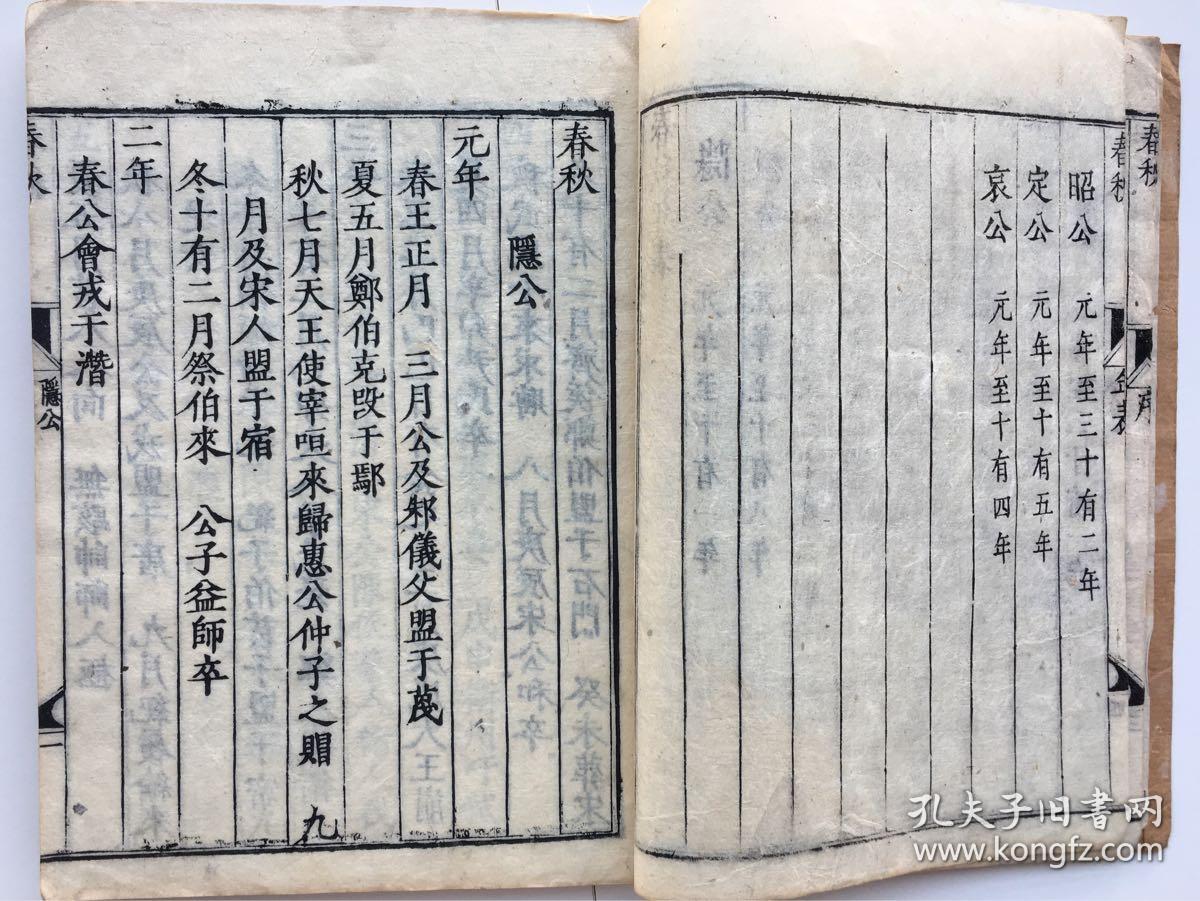 春秋
序
春秋
年表
昭公 元年至三十有二年
定公 元年至十有五年
哀公 元年至十有四年
春秋
隱公
元年
春王正月 三月公及邾儀父盟于蔑
夏五月鄭伯克段于鄢
秋七月天王使宰咺來歸惠公仲子之賵 九
月及宋人盟于宿
冬十有二月祭伯來 公子益師卒
二年
春公會戎于潛
春秋
隱公
孔夫子旧书网
www.kongfz.com